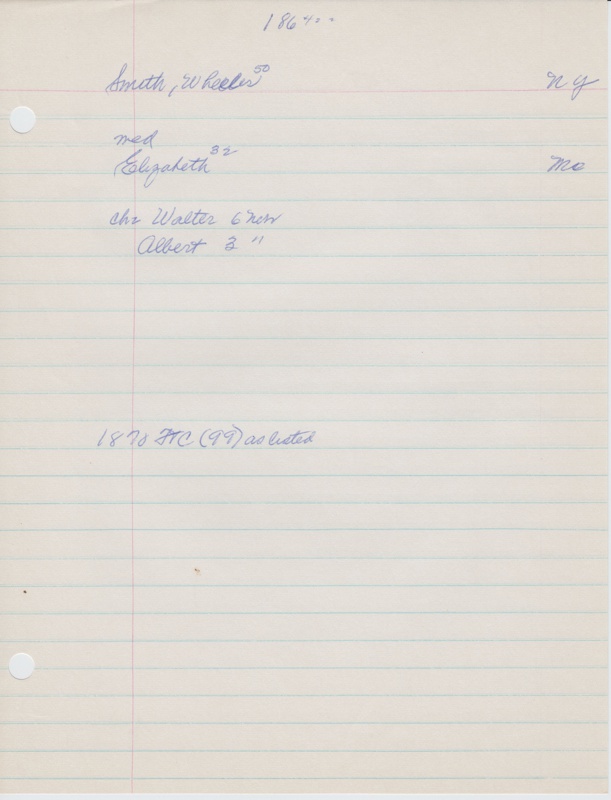 1864 - -
Smith, Wheeler 50 NY
med
Elizabeth 32 Mo
chr Walter 6 New
Albert 3 "
1870 FTC (99) as listed